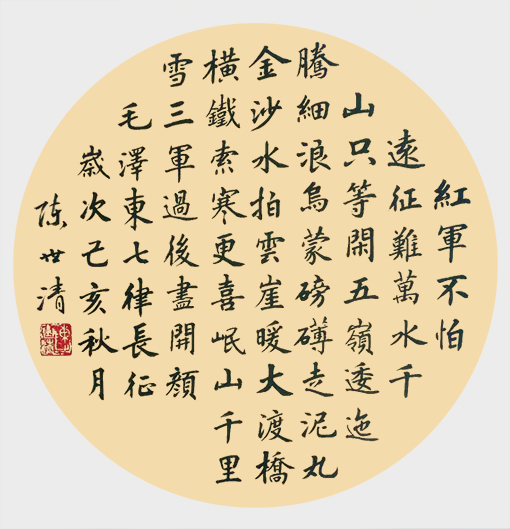 紅軍不怕
遠征難萬水千
山只等閑五嶺逶迤
騰細浪烏蒙磅礴走泥丸
金沙水拍雲崖暖大渡橋
橫鐵索寒更喜岷山千里
雪三軍過後盡開顏
毛澤東七律長征
歲次己亥秋月
陳世清